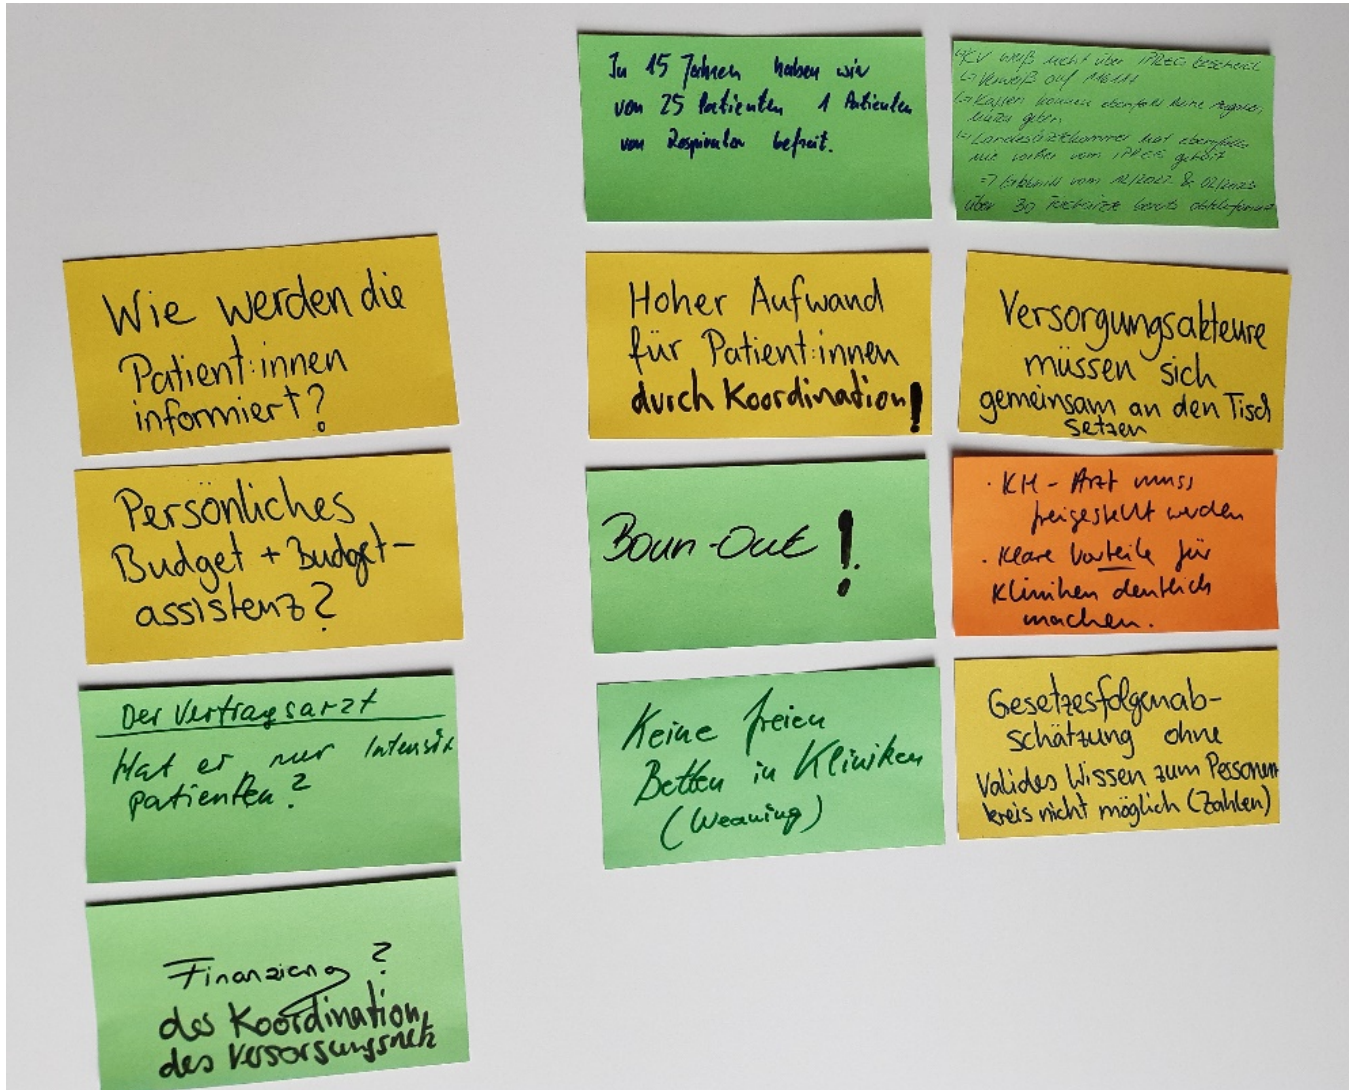 Wie werden die
Patient:innen
informiert?
Persönliches
Budget + Budget-
assistenz?
Der Vertragsarzt
Hat er nur Intensiv
patienten?
Finanzierng ?
des Koordination
des Versorgungsnetz
In 15 Jahren haben wir
von 25 Patienten 1 Patienten
von Respirator befreit.
Hoher Aufwand
für Patient:innen
durch Koordination!
Boun-Out !
Keine freien
Betten in Kliniken
(Weaning)
KV weiß nicht über IPREG bescheid
↳ Verweiß auf
↳ Kassen können ebenfalls keine
geben
↳ Landesärztekammer hat ebenfalls
nie vorher vom IPREG gehört
vom 12/2022 & 02/2023
über 30 bereits
Versorgungsakteure
müssen sich
gemeinsam an den Tisch
setzen
· KH-Arzt muss
freigestellt werden
· Klare Vorteile für
Kliniken deutlich
machen.
Gesetzesfolgenab-
schätzung ohne
Valides Wissen zum Personen
kreis nicht möglich (Zahlen)